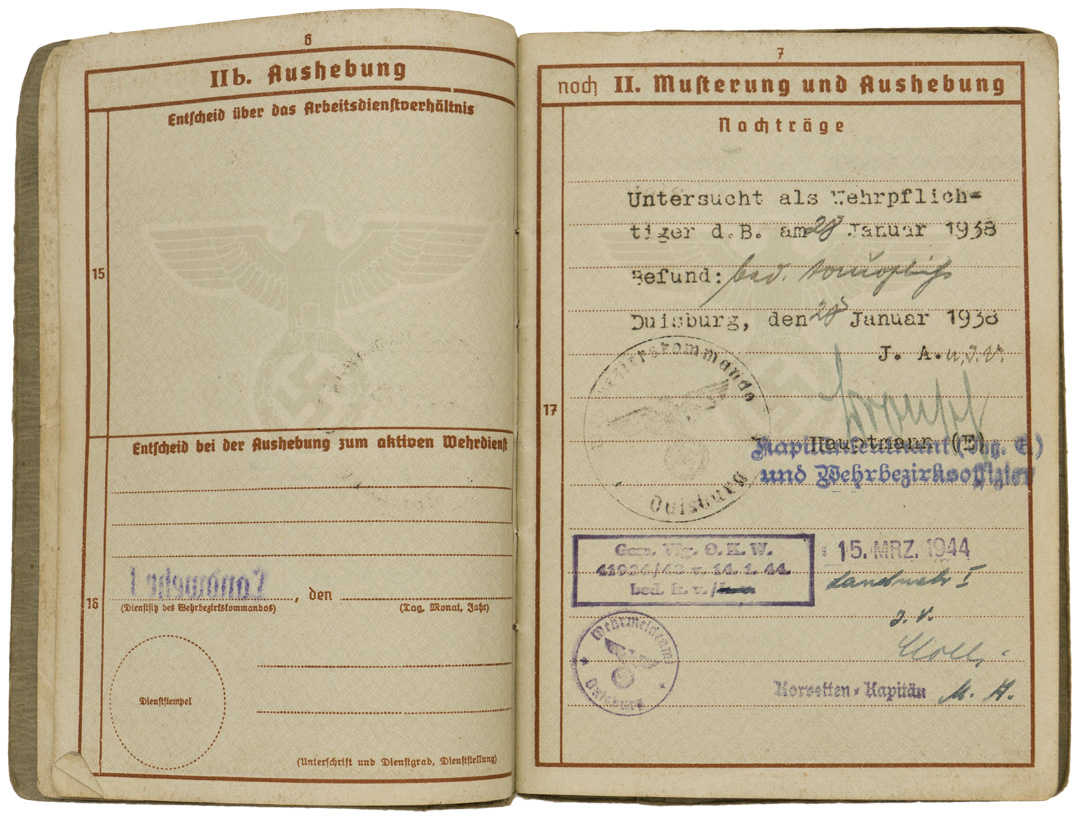 6
IIb. Aushebung
Entscheid über das Arbeitsdienstverhältnis
15
Entscheid bei der Aushebung zum aktiven Wehrdienst
16
Landwehr I
, den
(Dienstsitz des Wehrbezirkskommandos)
(Tag, Monat, Jahr)
Dienststempel
(Unterschrift und Dienstgrad, Dienststellung)
7
noch II. Musterung und Aushebung
Nachträge
17
Untersucht als Wehrpflich-
tiger d.B. am 28 Januar 1938
Befund: bed. tauglich
Duisburg, den 28 Januar 1938
J. A. u. J. V.
Hauptmann (E)
Kapitänleutnant (Erg. E.)
und Wehrbezirksoffizier
Duisburg
Gem. Vfg. O. K. W.
41926/43 v. 14. 1. 44.
bed. k. v./
15. MRZ. 1944
Landwehr I
J. V.
Wehrmeldeamt
Duisburg
Korvetten-Kapitän M. A.